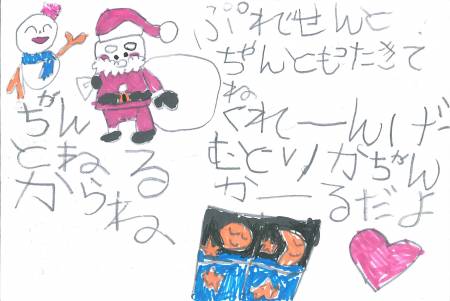 ぷれでせんと
ちゃんともったきて
ね
くれーんげー
むとリカちゃん
かーるだよ
ちゃん
とねる
からね